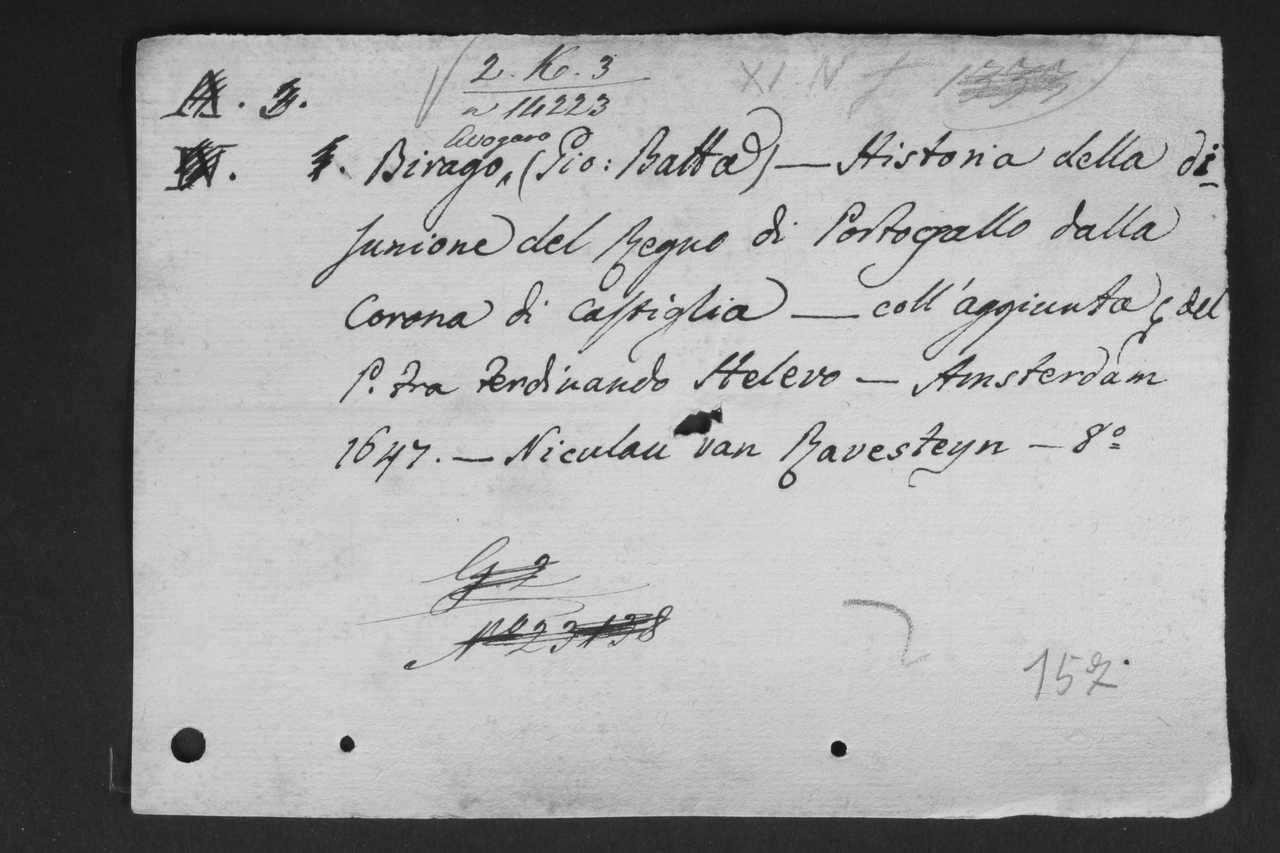 2. K. 3
n 14223
XI. N
Avogaro
Birago, (Gio: Batta) — Historia della di-
sunione del Regno di Portogallo dalla
Corona di Castiglia — coll'aggiunta del
P. Fra Ferdinando Helevo — Amsterdam
1647. — Niculau van Ravesteyn — 8º
G. 2
Nº 23138
157.